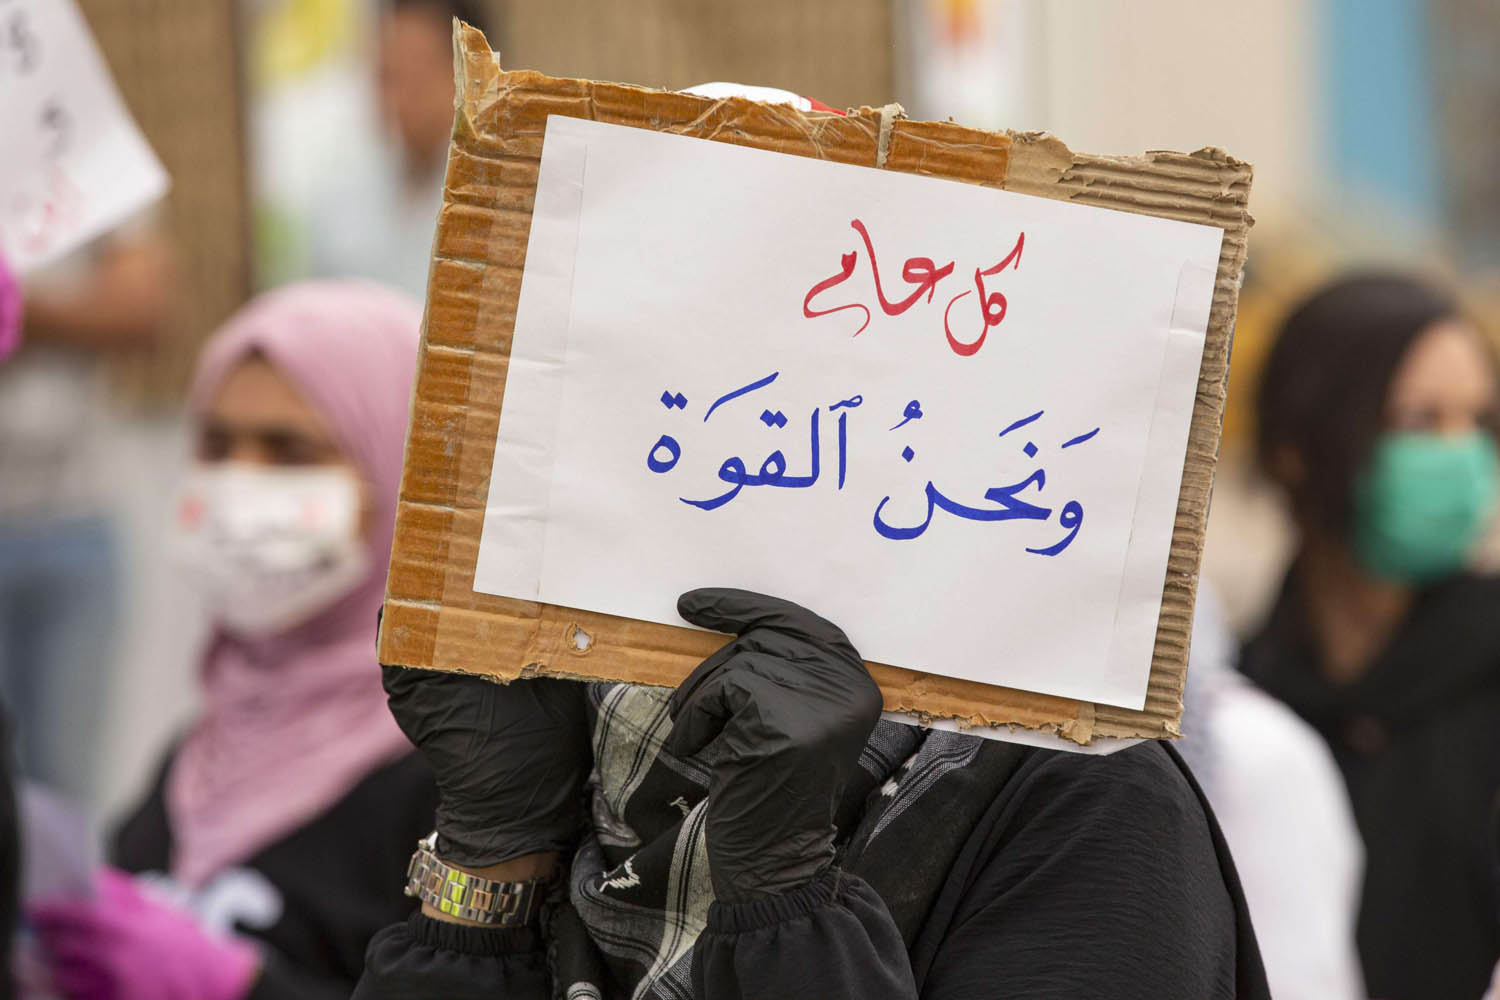 كل عام
وَنَحنُ ٱلقوَة